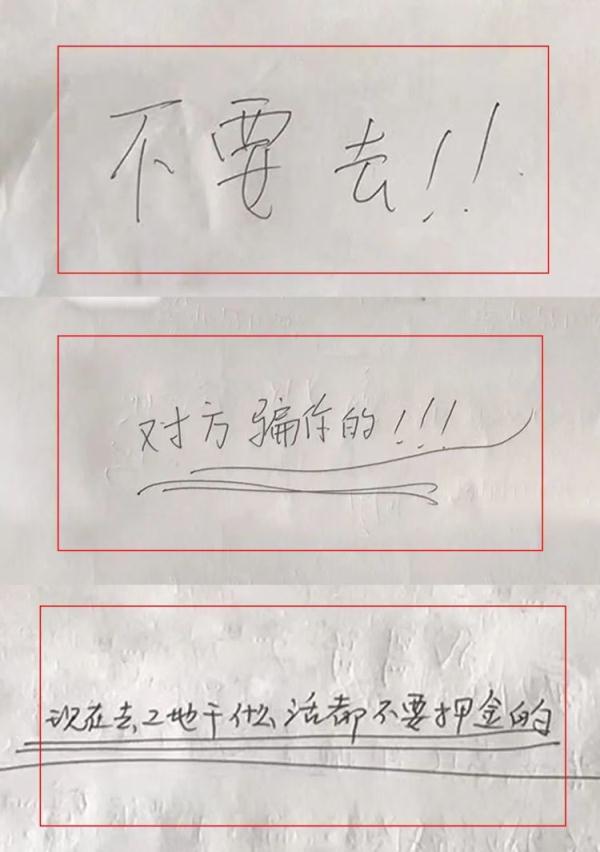 不要去!!
对方骗你的!!!
现在去工地干什么活都不要押金的